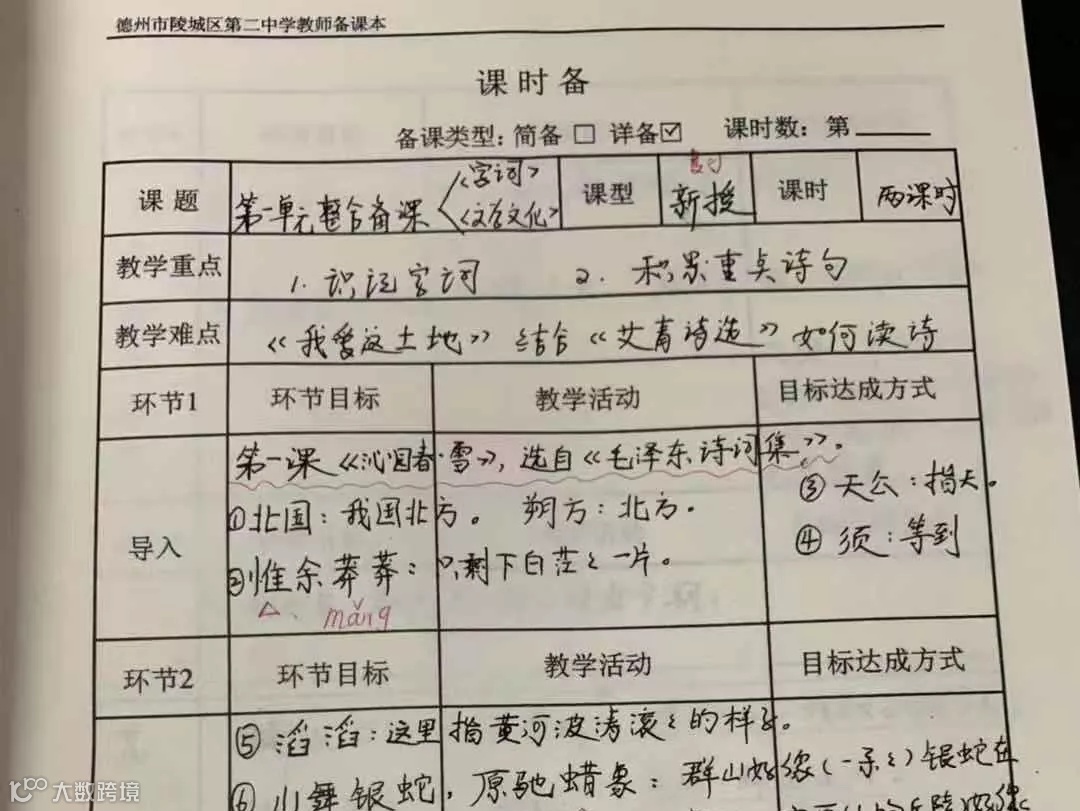 德州市陵城区第二中学教师备课本
课时备
备课类型：简备 □ 详备☑ 课时数：第
课题 第一单元整合备课 〈字词〉 〈文学文化〉 课型 新授 课时 两课时
教学重点 1. 识记字词 2. 积累重点诗句
教学难点 《我爱这土地》结合《艾青诗选》如何读诗
环节1 环节目标 教学活动 目标达成方式
导入
第一课《沁园春·雪》，选自《毛泽东诗词集》。
①北国：我国北方。 朔方：北方。
②惟余莽莽：只剩下白茫々一片。
mǎng
③天公：指天。
④须：等到
环节2 环节目标 教学活动 目标达成方式
⑤滔滔：这里指黄河波涛滚々的样子。
⑥山舞银蛇，原驰蜡象：群山好像(一条々)银蛇在
大数跨境